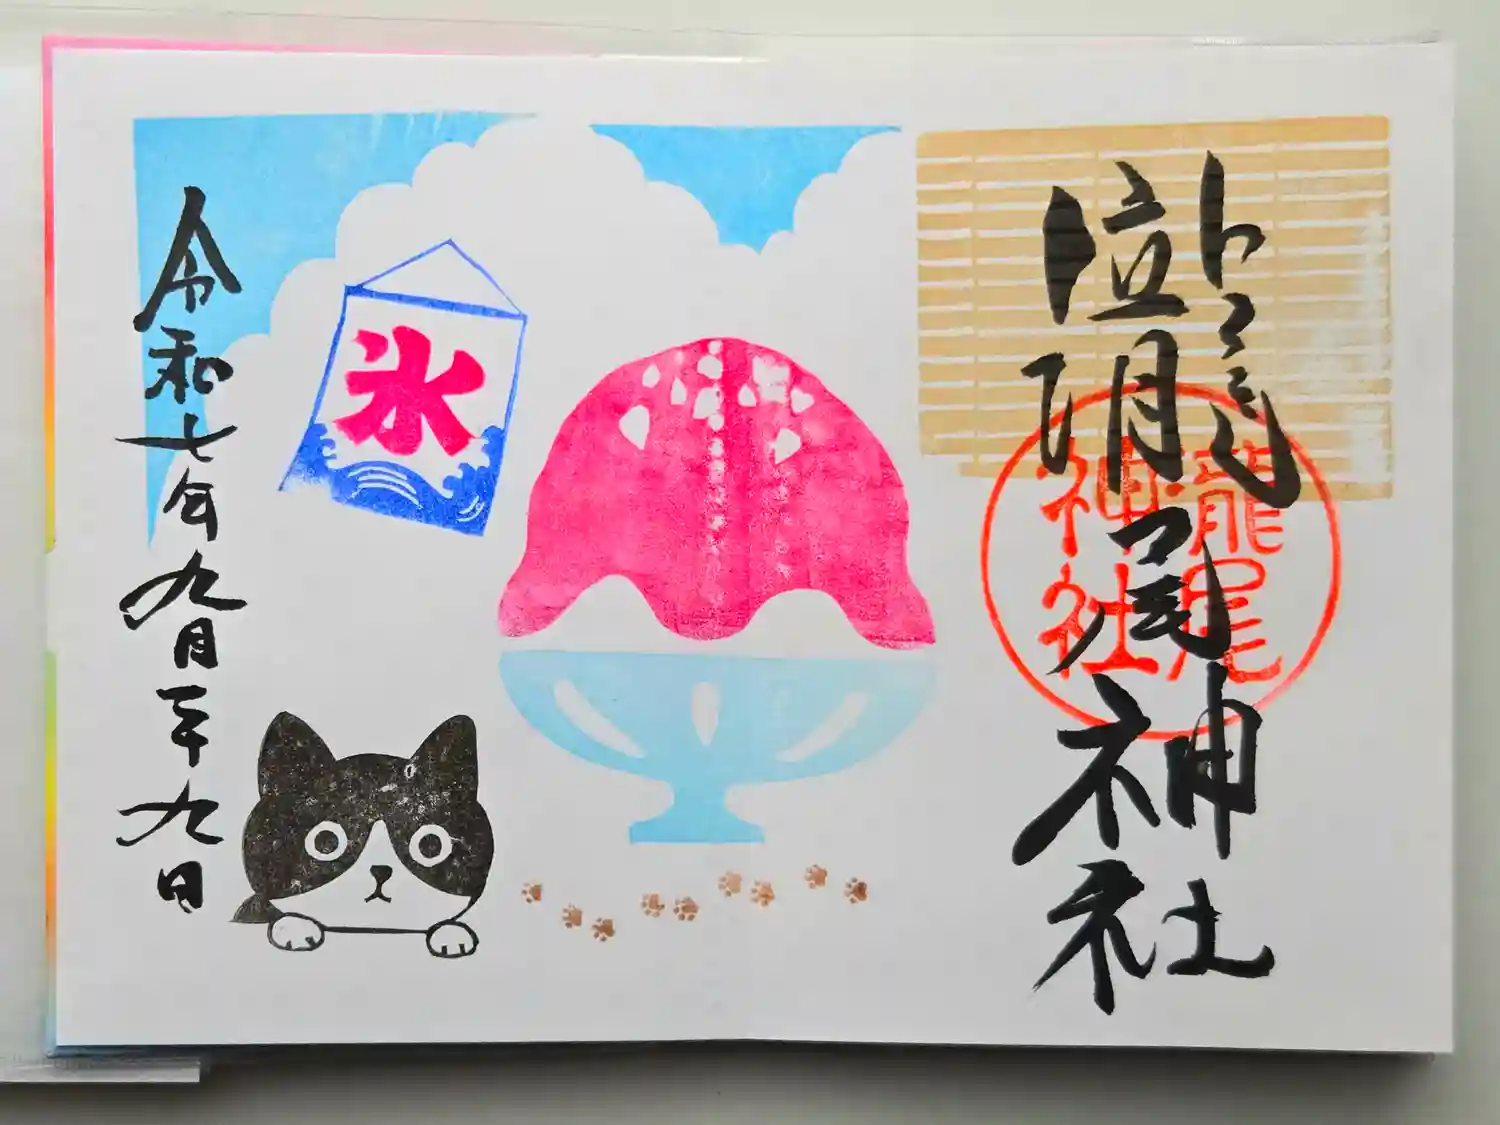 龍尾神社
龍尾
神社
氷
令和七年九月二十九日